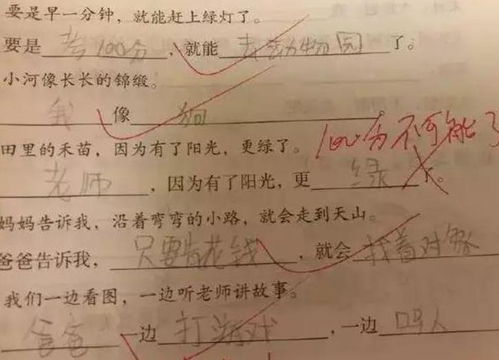 要是早一分钟，就能赶上绿灯了。
要是考100分，就能去动物园了。
小河像长长的锦缎。
我像狗。
田里的禾苗，因为有了阳光，更绿了。
100分不可能了
老师，因为有了阳光，更绿了。
妈妈告诉我，沿着弯弯的小路，就会走到天山。
爸爸告诉我，只要肯花钱，就会找着对象
我们一边看图，一边听老师讲故事。
爸爸一边打游戏，一边骂人